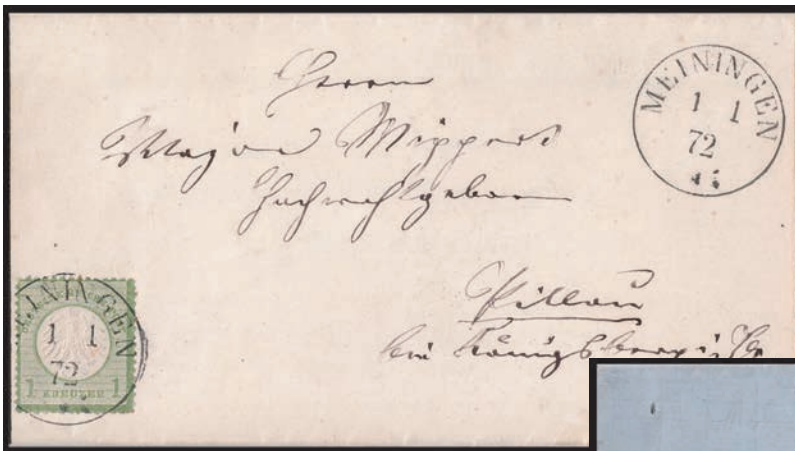 Herrn
Major Wippert
Hochwohlgeboren
MEININGEN
1 1
72
Pillau
bei Königsberg i/Pr
MEININGEN
1 1
72
1 KREUZER 1